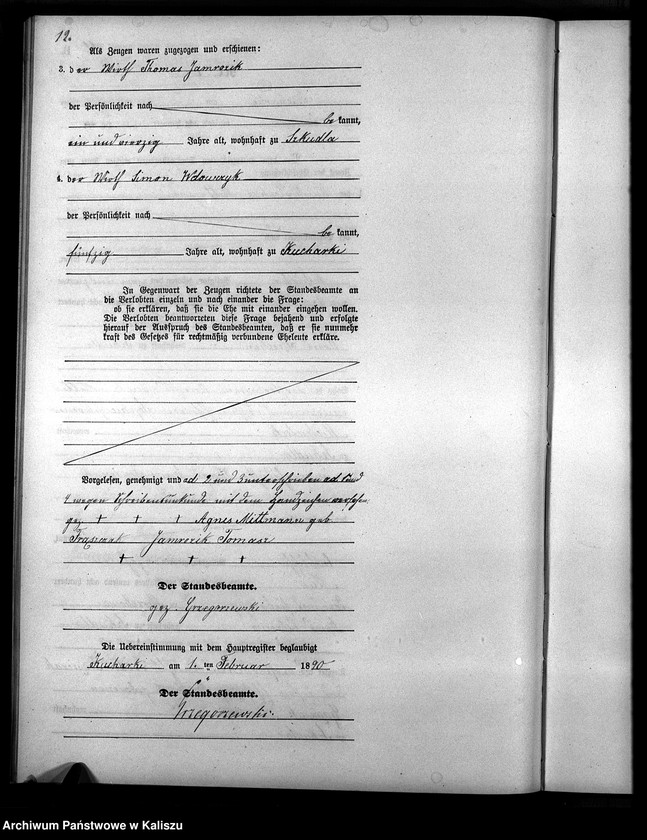 12.
Als Zeugen waren zugezogen und erschienen:
3. der Wirth Thomas Jamrozik
der Persönlichkeit nach
be kannt,
ein und vierzig Jahre alt, wohnhaft zu Szkudla
4. der Wirth Simon Wdowczyk
der Persönlichkeit nach
be kannt,
fünfzig Jahre alt, wohnhaft zu Kucharki
In Gegenwart der Zeugen richtete der Standesbeamte an
die Verlobten einzeln und nach einander die Frage:
ob sie erklären, daß sie die Ehe mit einander eingehen wollen.
Die Verlobten beantworteten diese Frage bejahend und erfolgte
hierauf der Ausspruch des Standesbeamten, daß er sie nunmehr
kraft des Gesetzes für rechtmäßig verbundene Eheleute erkläre.
Vorgelesen, genehmigt und ad 2 und 3 unterschrieben ad 1 und
4 wegen Schreibensunkunde mit dem Handzeichen versehen,
gez. + + + Agnes Mittmann geb.
Jamrozik Tomasz
+ + +
Der Standesbeamte.
gez. Grzegorzewski
Die Uebereinstimmung mit dem Hauptregister beglaubigt
Kucharki am 1. ten Februar 1890
Der Standesbeamte.
Grzegorzewski.
Archiwum Państwowe w Kaliszu